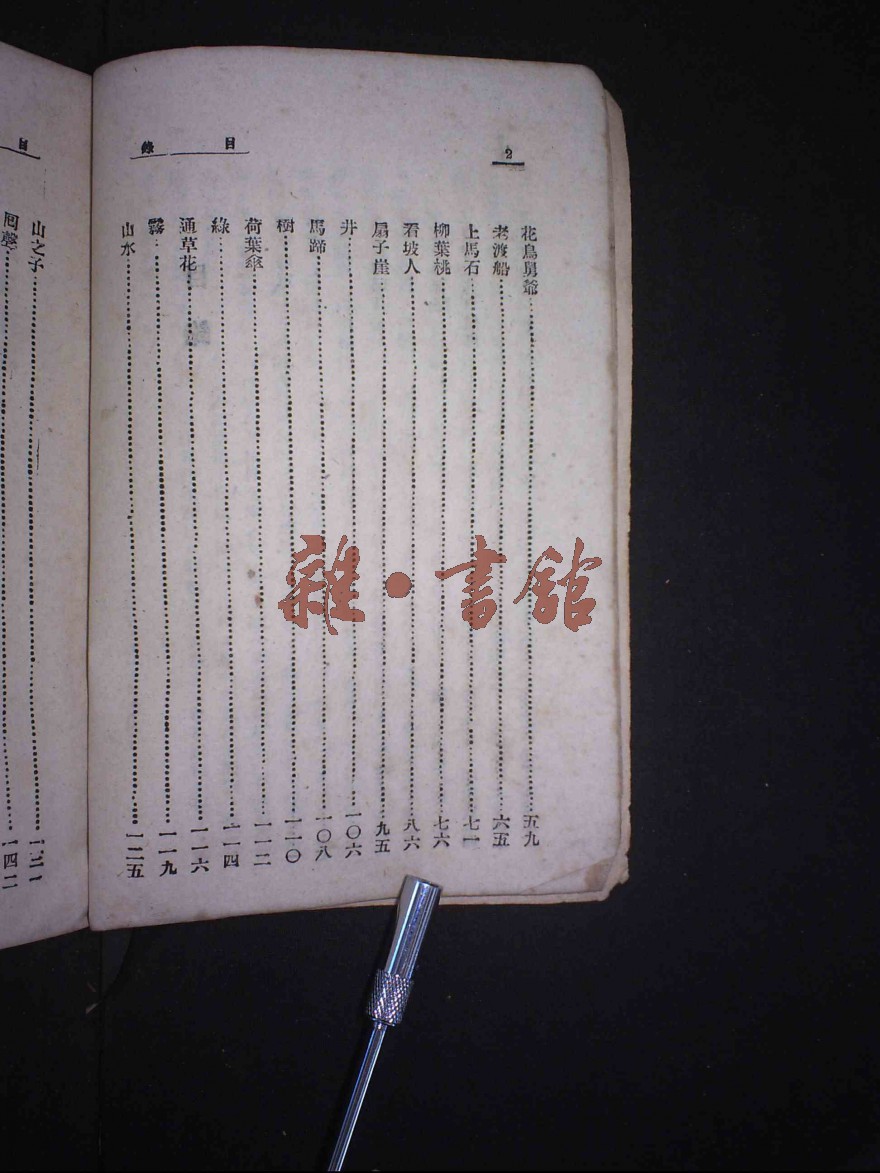 目錄
2
花鳥舅爺 五九
老渡船 六五
上馬石 七一
柳葉桃 七六
看坡人 八六
扇子崖 九五
井 一〇六
馬蹄 一〇八
樹 一一〇
荷葉傘 一一二
綠 一一四
通草花 一一六
霧 一一九
山水 一二五
目
山之子
回聲 一四二
雜·書館